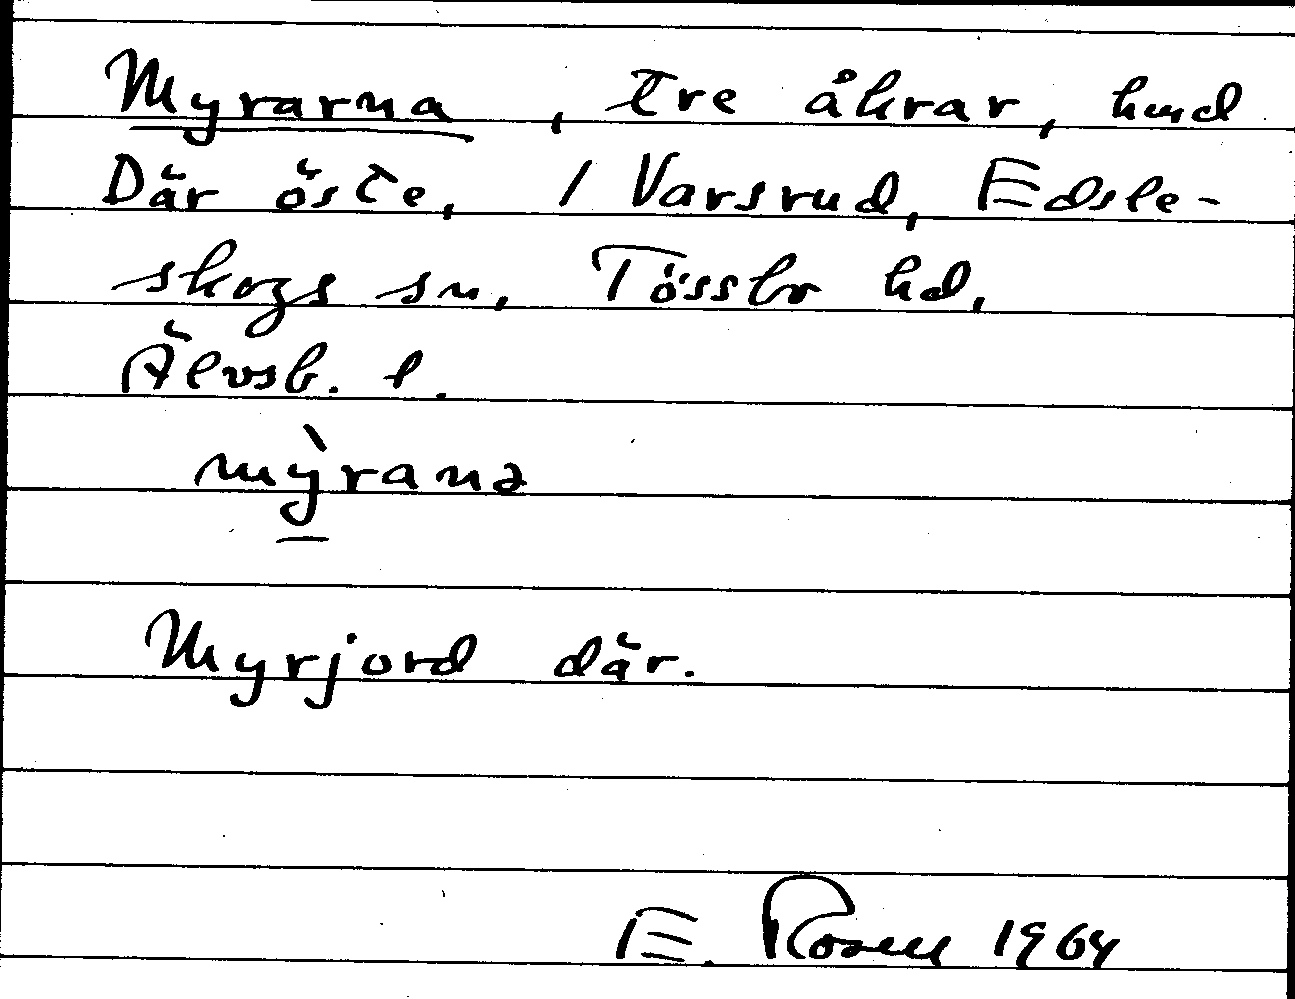 Myrarna, tre åkrar, hmd
Där öste, 1 Varsrud, Edsle-
skogs sn, Tössbo hd,
Älvsb. l.
mỳranə
Myrjord där.
E. Rosell 1964